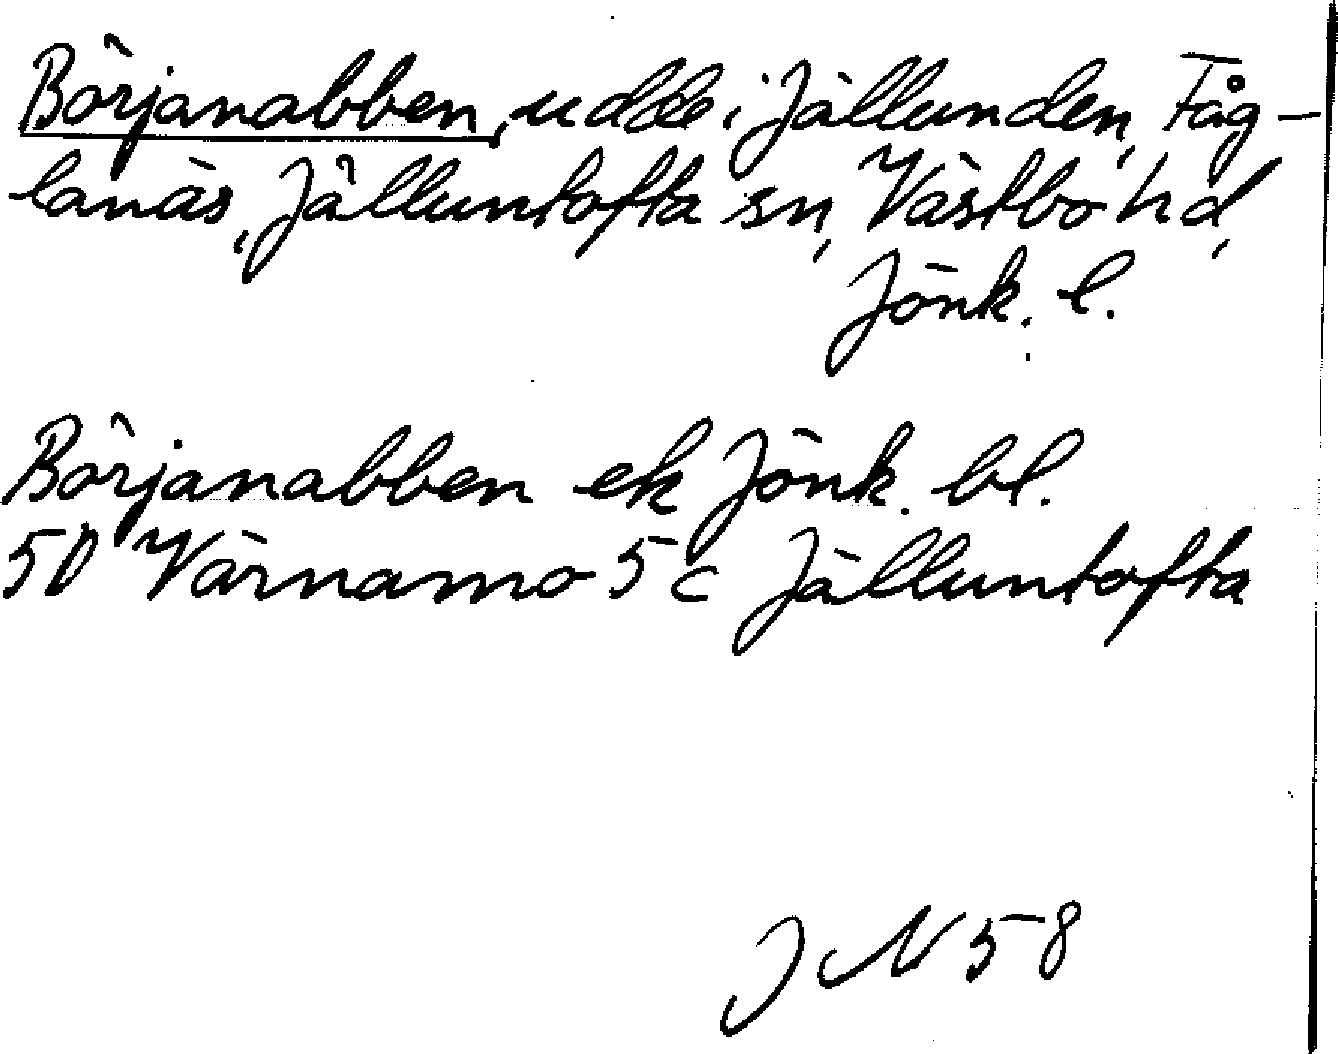 Börjanabben, udde i Jällunden, Fåg-
lanäs, Jälluntofta sn, Västbo hd,
Jönk. l.
Börjanabben ek Jönk. bl.
50 Värnamo 5 c Jälluntofta
J N 58